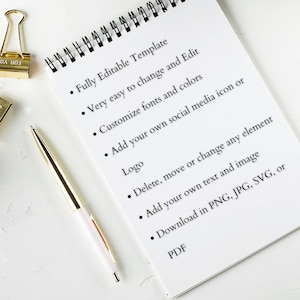 • Fully Editable Template
• Very easy to change and Edit
• Customize fonts and colors
• Add your own social media icon or
Logo
• Delete, move or change any element
• Add your own text and image
• Download in PNG, JPG, SVG, or
PDF